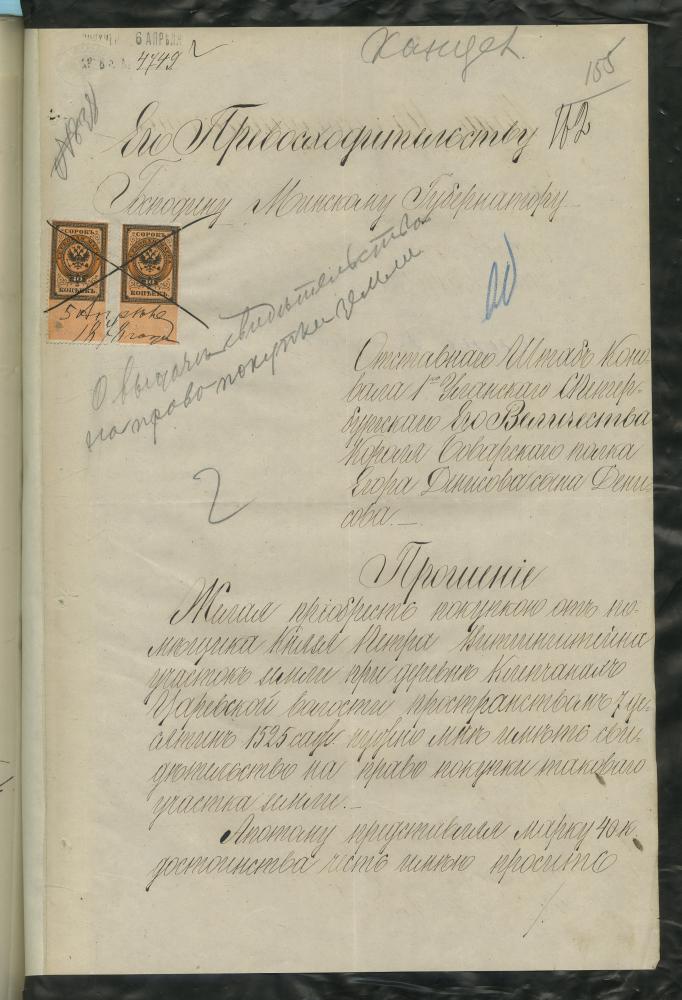 6 АПРѢЛЯ
4749
Канцел.
155
Его Превосходительству
162
Господину Минскому Губернатору
СОРОКЪ
40
КОПѢЕКЪ
СОРОКЪ
40
КОПѢЕКЪ
5 Апрѣля
1878 года
О выдачи свидѣтельства
на право покупки земли
Отставнаго Штабъ Коно-
вала 1го Уланскаго СПетер-
бургскаго Его Величества
Короля Боварскаго полка
Егора Денисова сына Дени-
сова. —
2
Прошеніе
Желая пріобрѣсть покупкою отъ по-
мѣщика Князя Петра Витгинштейна
участокъ земли при деревнѣ
Царевской волости пространствомъ 7 де-
сятинъ 1525 саж. нужно мнѣ имѣть сви-
дѣтельство на право покупки таковаго
участка земли. —
Апотому представляя марку 40 к.
достоинства честь имѣю просить